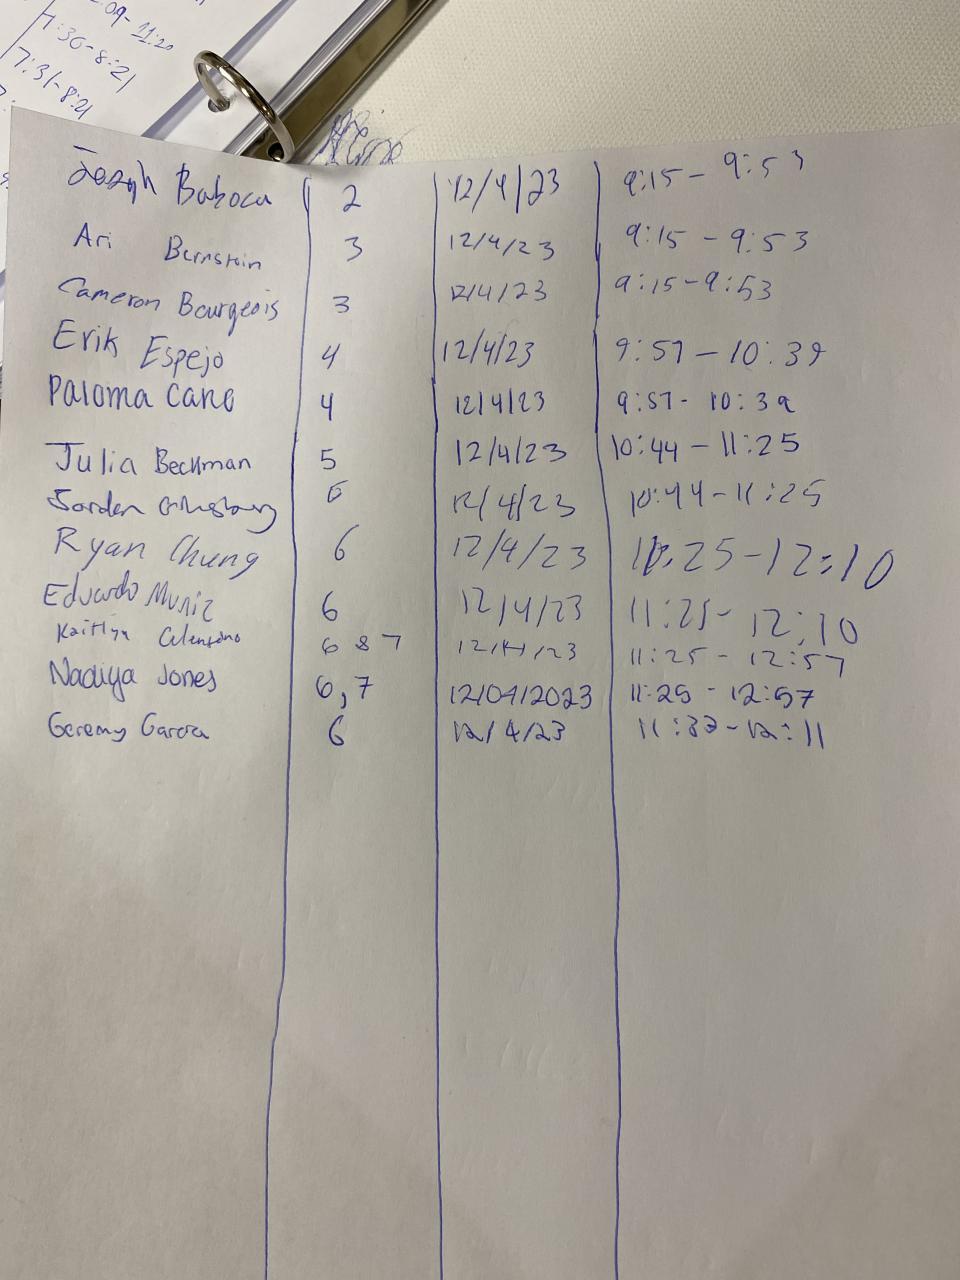 :09-11:20
7:36-8:21
7:31-8:21
Joseph Baboca 2 12/4/23 9:15 - 9:53
Ari Bernstein 3 12/4/23 9:15 - 9:53
Cameron Bourgeois 3 12/4/23 9:15-9:53
Erik Espejo 4 12/4/23 9:57 - 10:39
Paloma Cano 4 12/4/23 9:57 - 10:39
Julia Beckman 5 12/4/23 10:44 - 11:25
Jorden 12/4/23 10:44 - 11:25
Ryan Chung 6 12/4/23 11:25-12:10
Eduardo Muniz 6 12/4/23 11:25- 12:10
Kaitlyn Celentano 6 & 7 12/4/23 11:25 - 12:57
Nadiya Jones 6,7 12/04/2023 11:25 - 12:57
Geremy Garcia 6 12/4/23 12:11